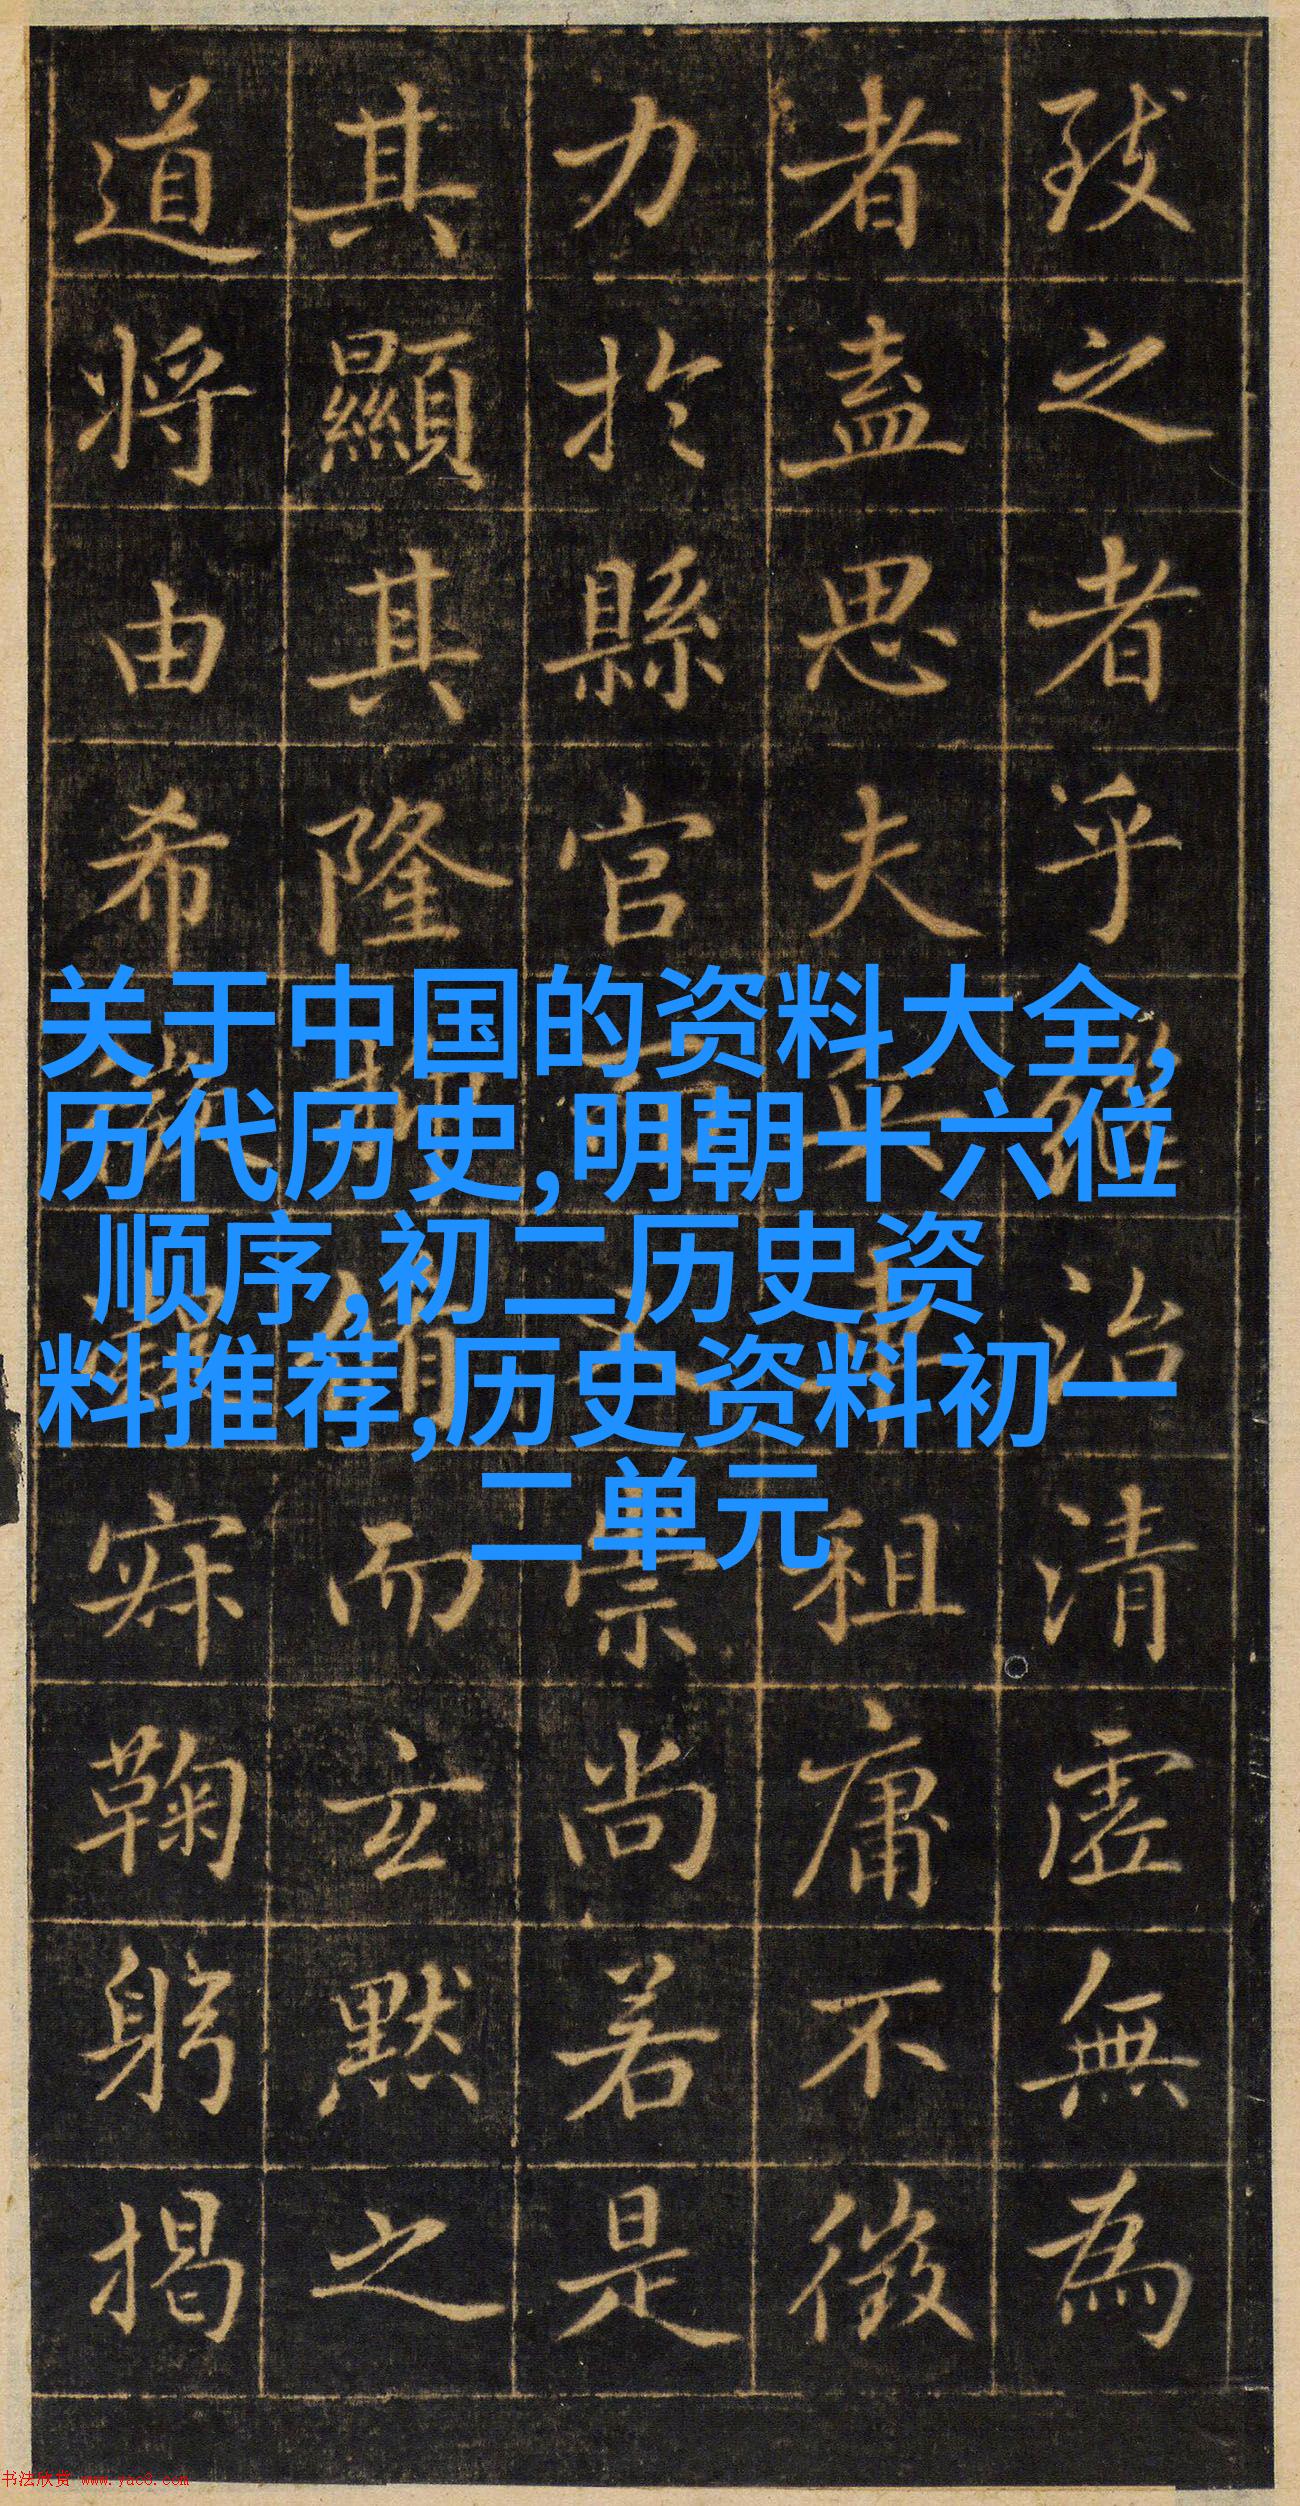 致之者乎治清虛無為
者盡思夫祖庸不徵
力於縣官崇尚若是
其顯其隆而玄默之
道將由希寐鞠躬揭
关于中国的资料大全,
历代历史,明朝十六位
顺序,初二历史资
料推荐,历史资料初一
二单元
书法欣赏 www.yac8.com